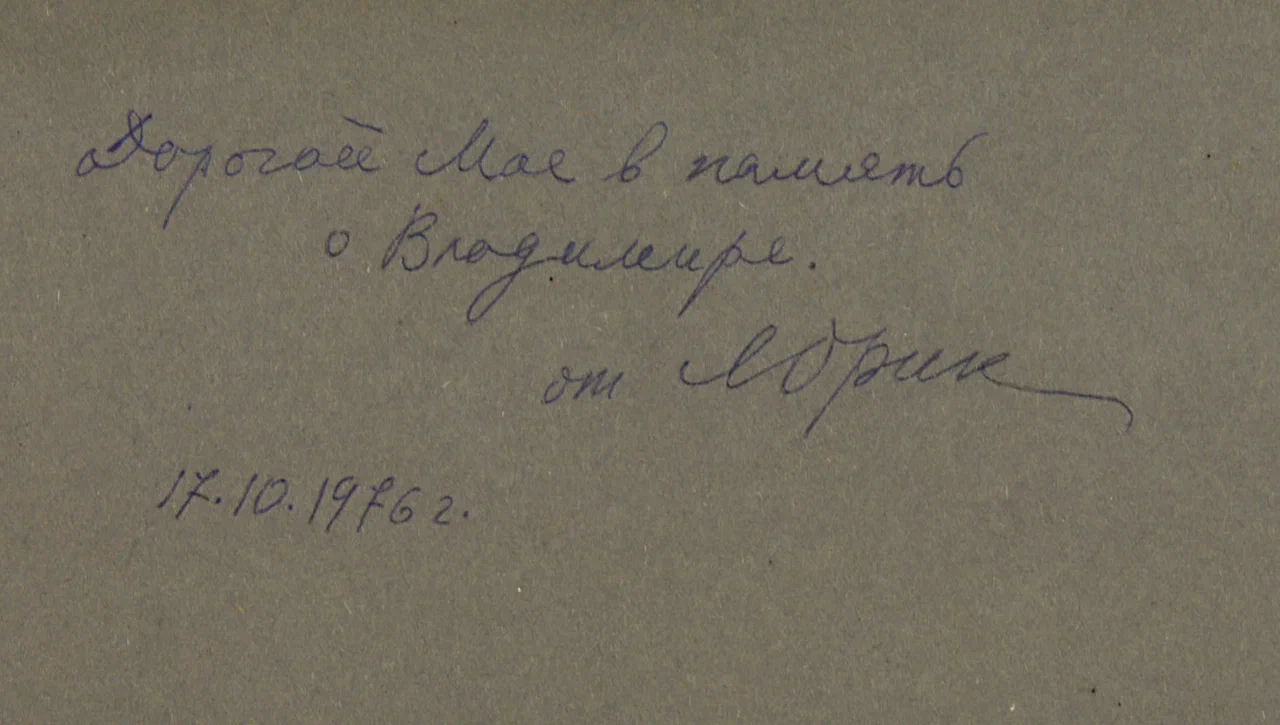 Дорогой Мае в память
о Владимире.
от ЛБрик
17.10.1976 г.